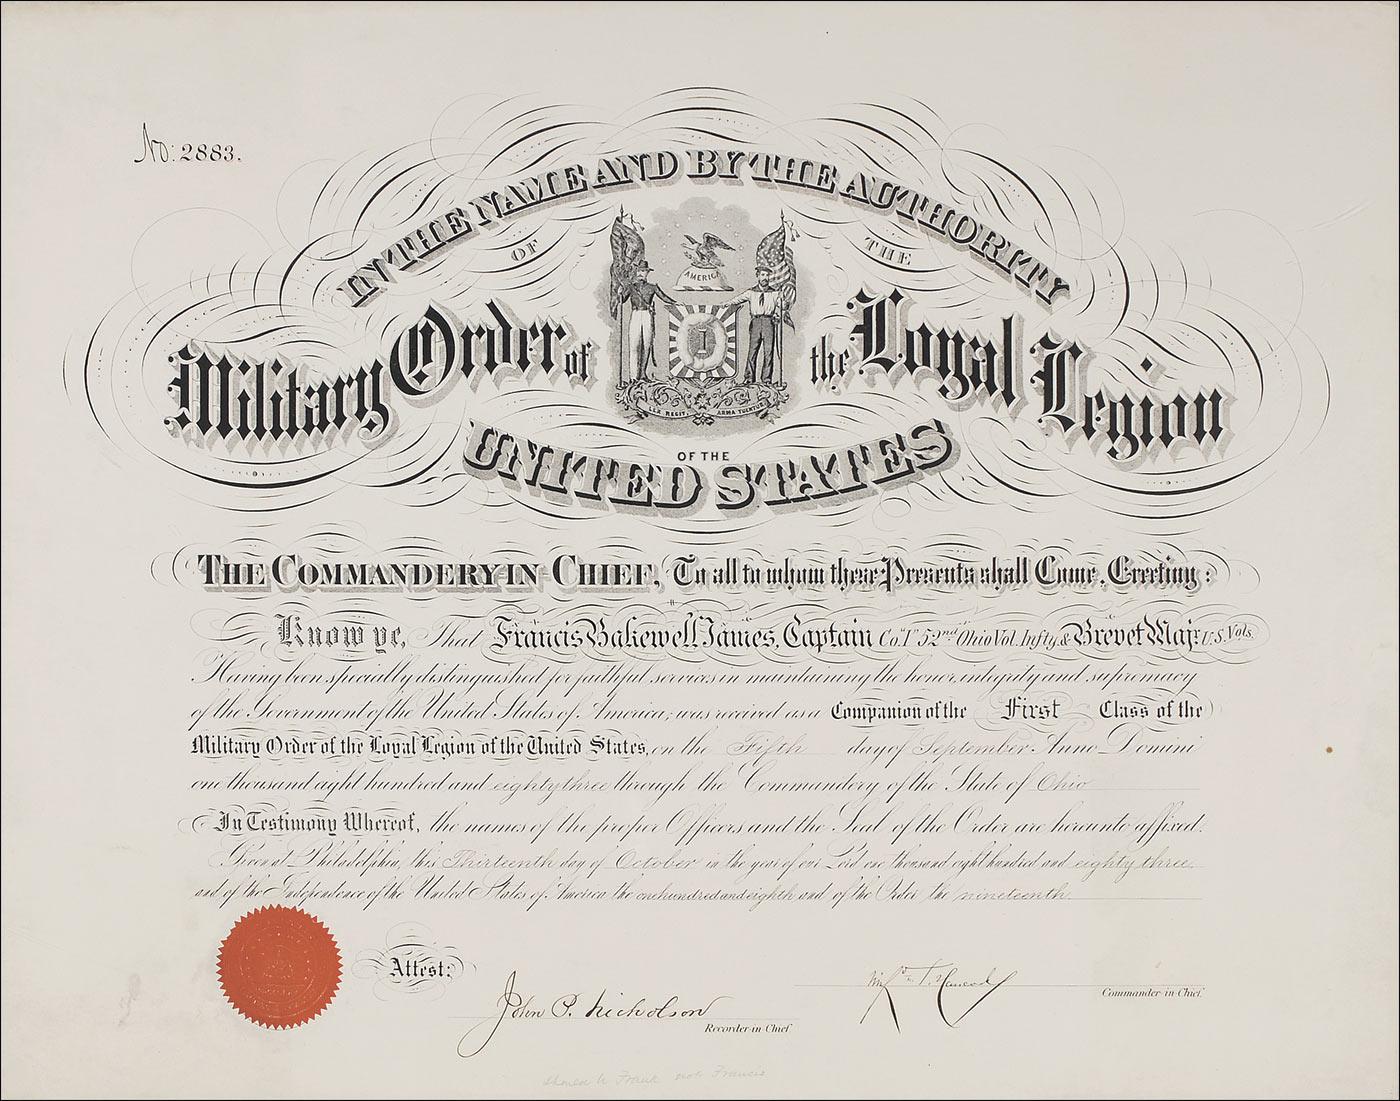 No. 2883.
IN THE NAME AND BY THE AUTHORITY
OF THE
AMERICA
1
LEX REGIT, ARMA TUENTUR
Military Order of the Loyal Legion
OF THE
UNITED STATES
THE COMMANDERY IN CHIEF, To all to whom these Presents shall Come, Greeting:
Know ye, That Francis Bakewell James, Captain Co. "I" 52nd Ohio Vol. Infty. & Brevet Maj. U.S. Vols.
Having been specially distinguished for faithful services in maintaining the honor, integrity and supremacy
of the Government of the United States of America; was received as a Companion of the First Class of the
Military Order of the Loyal Legion of the United States, on the Fifth day of September Anno Domini
one thousand eight hundred and eighty three through the Commandery of the State of Ohio
In Testimony Whereof, the names of the proper Officers and the Seal of the Order are hereunto affixed.
Given at Philadelphia, this Thirteenth day of October in the year of our Lord one thousand eight hundred and eighty three
and of the Independence of the United States of America the one hundred and eighth and of the Order the nineteenth.
Attest:
John P. Nicholson
Recorder-in-Chief
Winfd. S. Hancock
Commander-in-Chief.
should be Frank not Francis